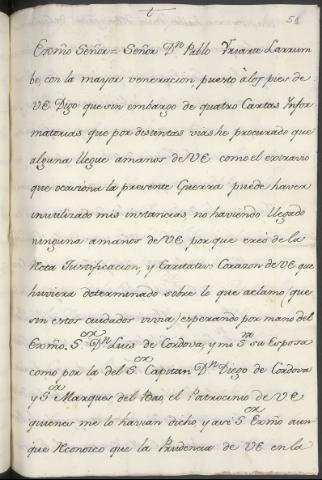 t
51
Exmõ Señor = Señor Dⁿ Pablo Yriarte Larrum
be, con la mayor veneracion, puesto à los pies de
VE Digo que sin embargo de quatro Cartas Infor
matorias que por distintas vias he procurado que
alguna llegue amanos de VE como el extravio
que ocasiona la presente Guerra puede haver
inutilizado mis instancias, no haviendo llegado
ninguna amanos de VE, por que creo de la
Recta Justificacion, y Caritativo Corazon de VE que
huviera determinado sobre lo que aclamo (que
sin estos cuidados vivia) esperando por mano del
Exmõ. Sᵒʳ Dⁿ Luis de Cordova, y mi Sʳᵃ su Esposa
como por la del Sᵒʳ Capitan Dⁿ Diego de Cordova
y Sᵒʳ Marques del el Patrocinio de VE
quienes me lo havian dicho, y asi Sᵒʳ Exmõ aun-
que Reconozco que la Prudencia de VE en la